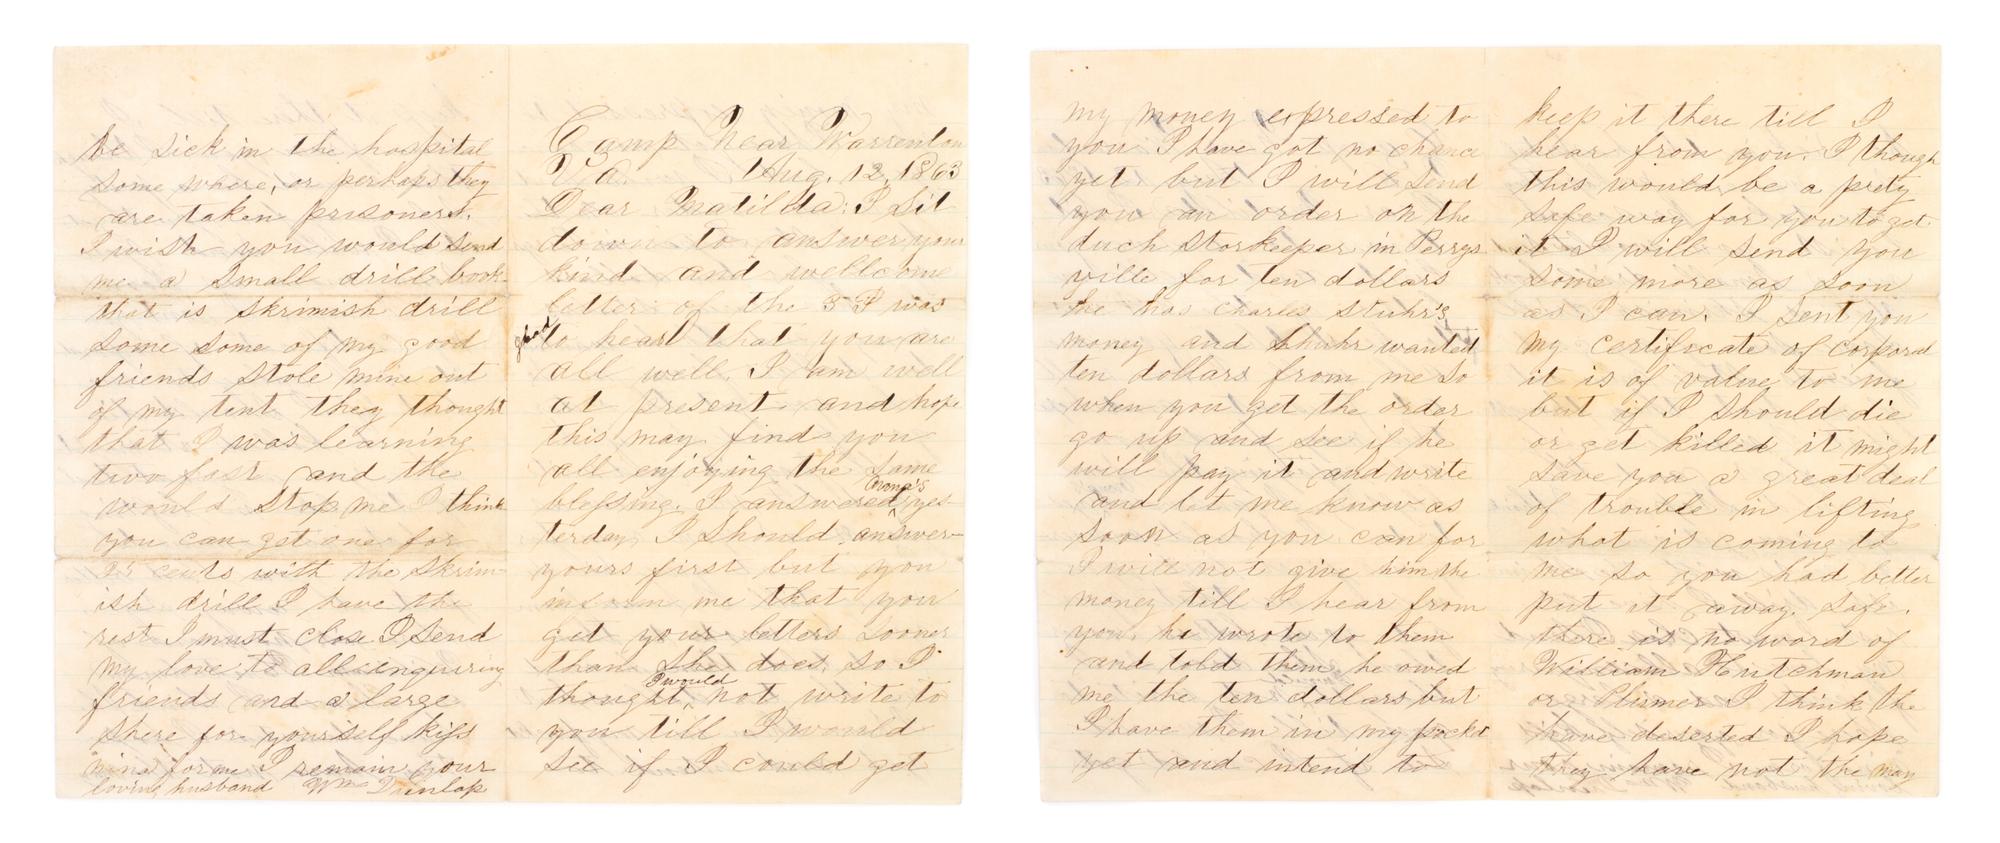 Camp Near Warrenton
Va. Aug. 12, 1863
Dear Matilda: I Sit
down to answer your
kind and wellcome
letter of the 5 I was
glad to hear that you are
all well. I am well
at present and hope
this may find you
all enjoying the same
blessing. I answered Anna's yes-
terday, I Should answer-
yours first but you
inform me that you
get your letters sooner
than She does. So I
thought I would not write to
you till I would
see if I could get
my money expressed to
you I have got no chance
yet but I will Send
you an order on the
duch Storkeeper in Perrys
ville for ten dollars
he has Charles Stuhr's
money and Shuhr wanted
ten dollars from me So
when you get the order
go up and See if he
will pay it and write
and let me know as
soon as you can for
I will not give him the
money till I hear from
you, he wrote to them
and told them he owed
me the ten dollars but
I have them in my pocket
yet and intend to
keep it there till I
hear from you. I though
this would be a prety
Safe way for you to get
it I will Send you
some more as soon
as I can. I Sent you
my certificate of corporal
it is of value to me
but if I Should die
or get killed it might
Save you a great deal
of trouble in lifting
what is coming to
me so you had better
put it away Safe.
there is no word of
William Hutchman
or Plumer I think the
have deserted I hope
they have not the may
be Sick in the hospital
Some where, or perhaps they
are taken prisoners.
I wish you would Send
me a Small drill book
that is Skrimish drill
Some Some of my good
friends Stole mine out
of my tent they thought
that I was learning
two fast and the
would Stop me I think
you can get one for
25 cents with the Skrim-
ish drill I have the
rest I must close I Send
my love to all enquiring
friends and a large
Shere for yourself kiss
mina for me I remain your
loving husband Wm Dunlap